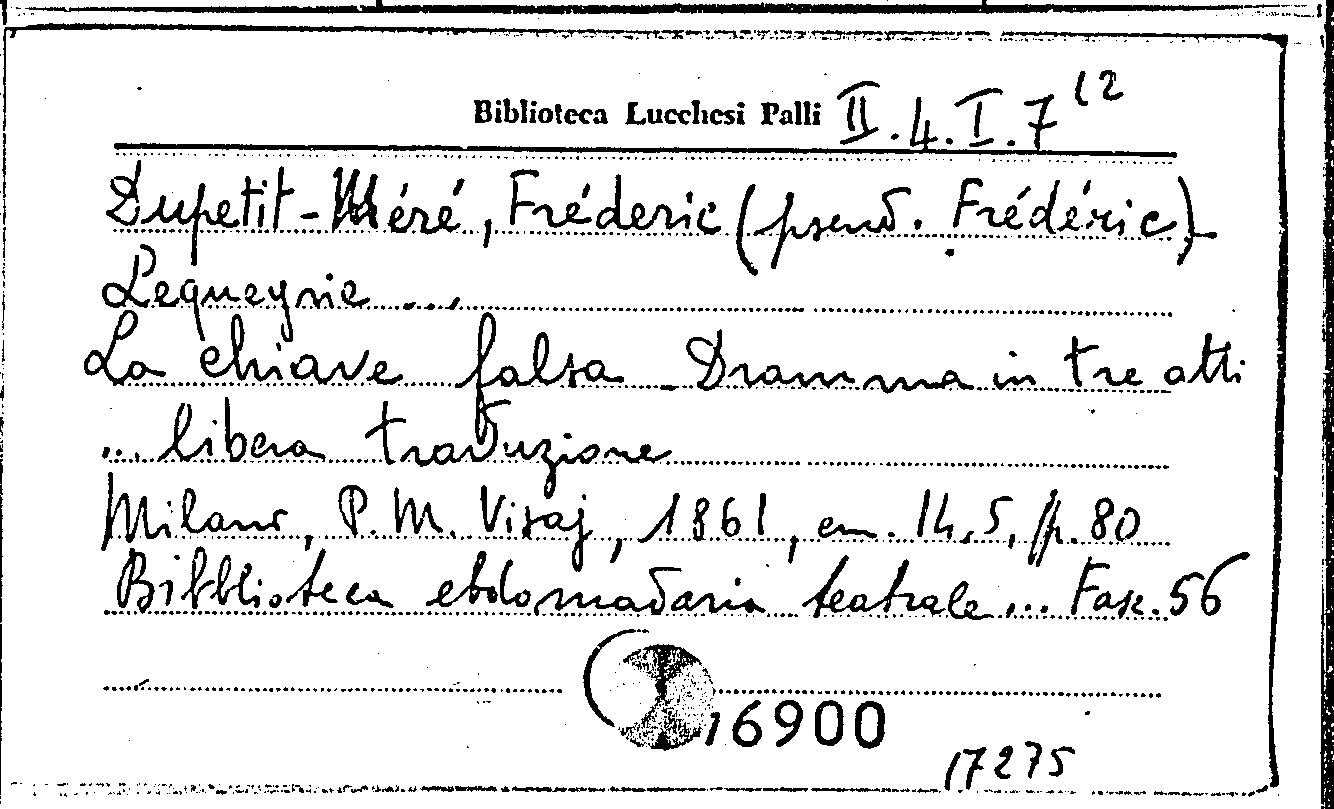 Biblioteca Lucchesi Palli II.4.I.7 12
Dupetit-Méré, Fréderic (pseud. Frédéric)-
Lequeyrie ...
La chiave falsa - Dramma in tre atti
... libera traduzione
Milano, P. M. Visaj, 1861, cm. 14,5, pp. 80
Bibblioteca ebdomadaria teatrale ... Fasc. 56
16900
17275